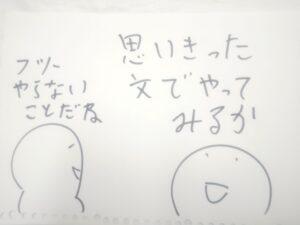 思いきった
文でやって
みるか
フツー
やらない
ことだな